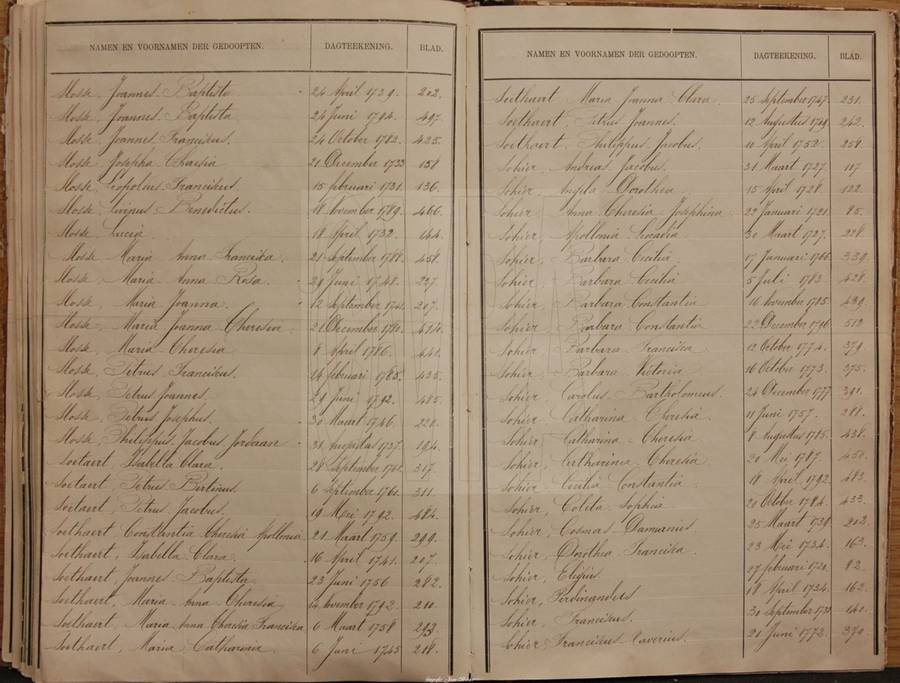 NAMEN EN VOORNAMEN DER GEDOOPTEN. DAGTEEKENING. BLAD.
Joannes Baptista 24 April 1739. 202.
Joannes Baptista 24 Juni
Joannes Franciskus. 24 October 1782. 425.
Josepha Theresia 21 December 1732 158
Franciskus 15 februari 1731. 136.
Livinus Benedictus. 18 November 1789. 466.
Lucia 18 April 1732. 144.
Maria Anna Franciska. 21 September 1788. 458.
Maria Anna Rosa. 29 Juni 1748. 237.
Maria Joanna. 12 September 207.
Maria Joanna Theresia. 21 December
Maria Theresia 8 April 1786. 441.
Petrus Franciskus. 14 februari 1785. 435.
Petrus Joannes. 29 Juni 1792. 485.
Petrus Josephus. 30 Maart 1746. 220.
Philippus Jacobus 31 Augustus 1737. 194.
Soetaert, Isabella Clara. 28 September 317.
Soetaert, Petrus Bertinus. 6 September 1761. 311.
Soetaert, Petrus Jacobus. 19 Mei 1792. 484.
Soethaert Constantia Theresia Apollonia 21 Maart 1759. 299.
Soethaert, Isabella Clara. 16 April 1741. 207.
Soethaert Joannes Baptista 23 Juni 1756 282.
Soethaert, Maria Anna Theresia November 210.
Soethaert, Maria Anna Theresia Franciska 6 Maart 1758 293.
Soethaert, Maria Catharina 6 Juni 1745 218.
NAMEN EN VOORNAMEN DER GEDOOPTEN. DAGTEEKENING. BLAD.
Soethaert Maria Joanna Clara. 25 September 1747. 231.
Soethaert, Petrus Joannes. 12 Augustus 1749 242.
Soethaert, Philippus Jacobus. 10 April 1752. 258.
Sohier Andreas Jacobus. 31 Maart 1727. 117
Sohier Dorothea 15 April 1728. 122.
Sohier Anna Theresia Josephina 22 Januari 1721. 85.
Sohier, Apollonia 30 Maart 1727.
Sohier, Barbara Cecilia 17 Januari 1766. 339.
Sohier, Barbara Cecilia 5 Juli 1783 428.
Sohier Barbara Constantia 16 November 1785 439.
Sohier Barbara Constantia 23 December 1796 512
Sohier Barbara Franciska 12 October 1774. 379.
Sohier Barbara Victoria 16 October 1773. 375.
Sohier Carolus Bartholomeus. 24 December 1777 391.
Sohier Catharina Theresia. 11 Juni 1757. 288.
Sohier Catharina Theresia 8 Augustus 1785. 438.
Sohier, Catharina Theresia 20 Mei 1787.
Sohier Cecilia Constantia 18 April 1792 483.
Sohier, Coleta Sophia 20 October 1784. 433.
Sohier, Cosmas Damianus. 25 Maart 1739 202.
Sohier, Dorothea Franciska. 23 Mei 1734. 163.
Sohier, 27 februari 1720. 82.
Sohier, Ferdinandus 18 April 1734. 162.
Sohier, Franciskus. 30 September
Sohier Franciskus Xaverius. 21 Juni 1773. 370